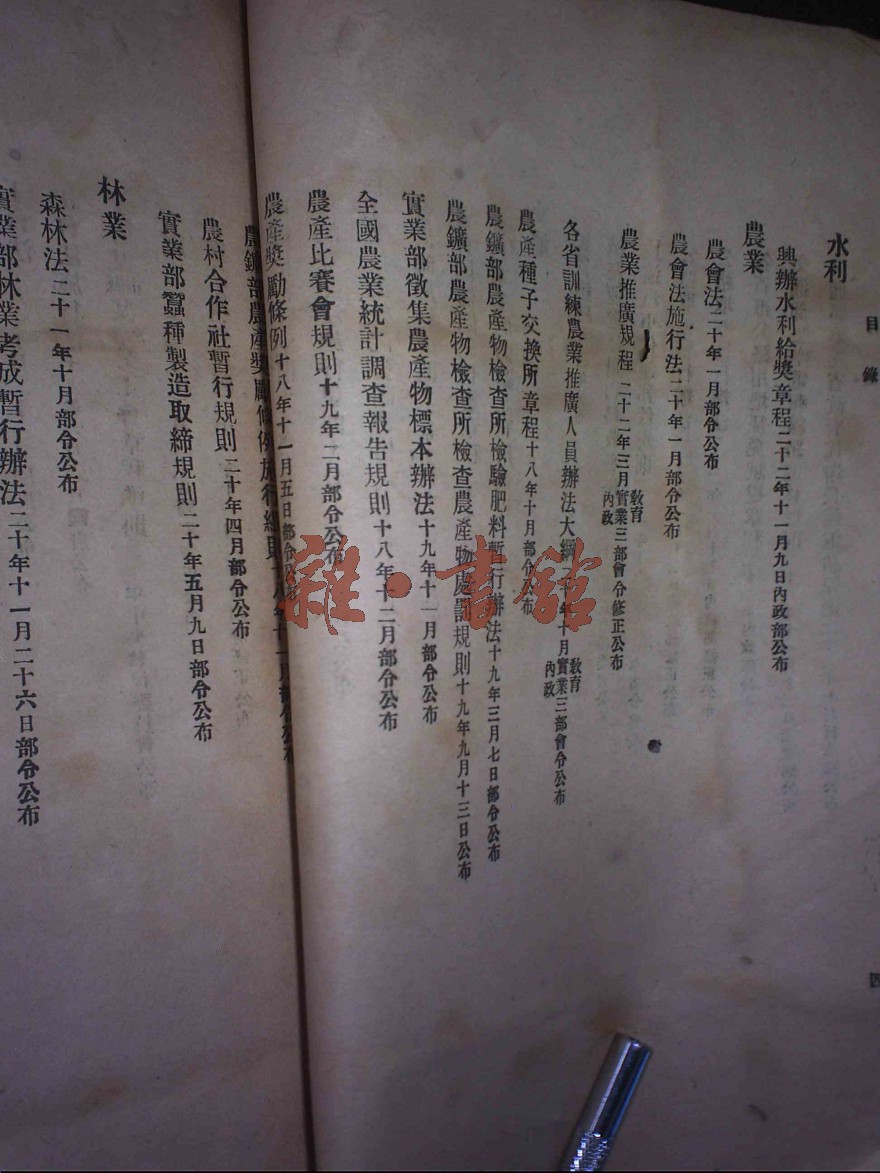 目錄
水利
興辦水利給獎章程二十二年十一月九日內政部公布
農業
農會法二十年一月部令公布
農會法施行法二十年一月部令公布
農業推廣規程二十二年三月內政實業教育三部會令修正公布
各省訓練農業推廣人員辦法大綱十年十月內政實業教育三部會令公布
農產種子交換所章程十八年十月部令公布
農鑛部農產物檢查所檢驗肥料暫行辦法十九年三月七日部令公布
農鑛部農產物檢查所檢查農產物處罰規則十九年九月十三日公布
實業部徵集農產物標本辦法十九年十一月部令公布
全國農業統計調查報告規則十八年十二月部令公布
農產比賽會規則十九年二月部令公布
農產獎勵條例十八年十一月五日部令
農鑛部農產獎勵條例施行細則
農村合作社暫行規則二十年四月部令公布
實業部蠶種製造取締規則二十年五月九日部令公布
林業
森林法二十一年十月部令公布
實業部林業考成暫行辦法二十年十一月二十六日部令公布
四
雜·書館